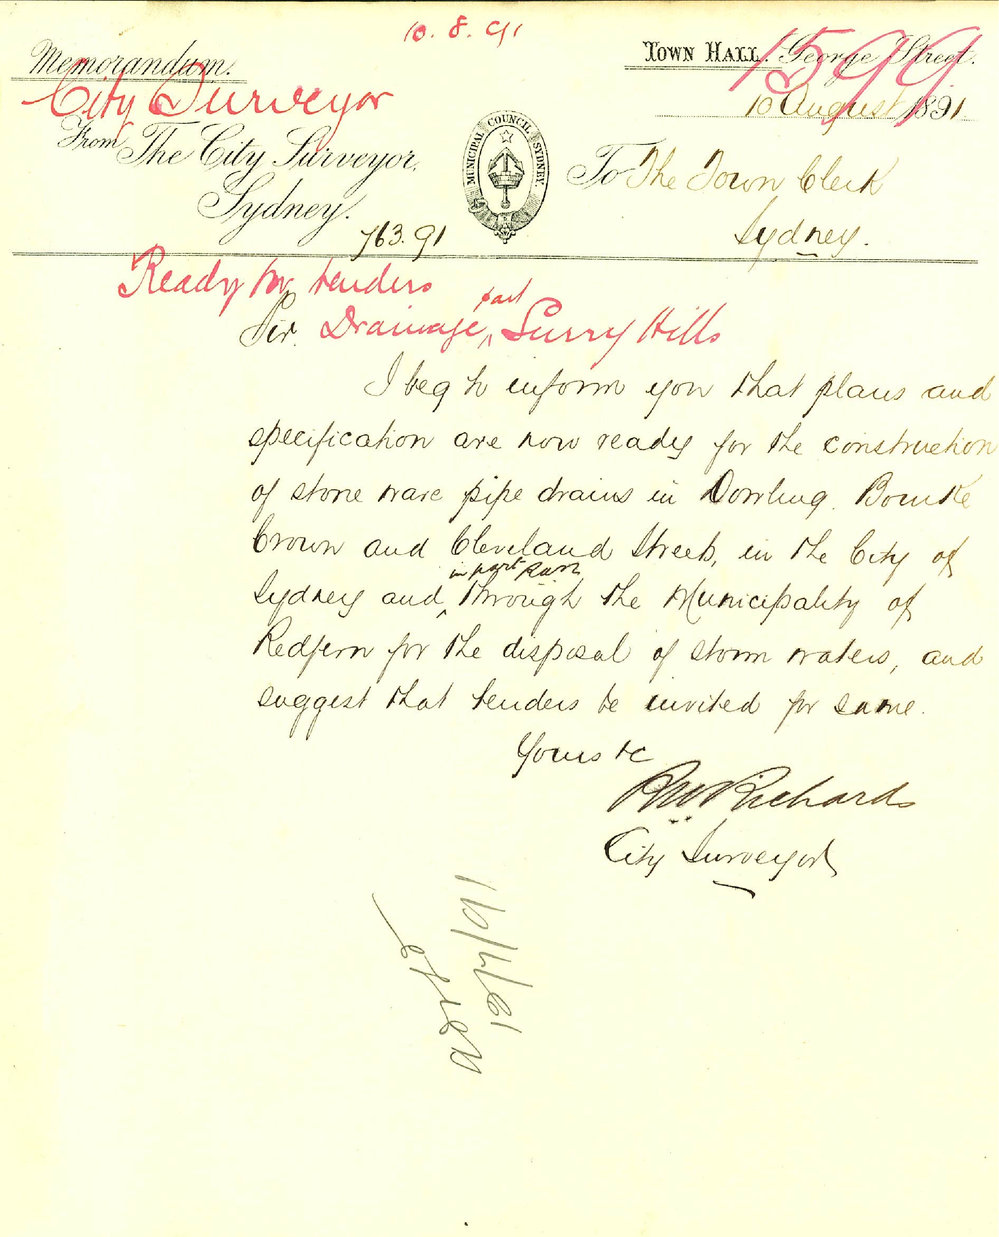 10.8.91
Memorandum.
Town Hall. George Street.
1599
City Surveyor
10 August 1891
From The City Surveyor,
Sydney.
MUNICIPAL COUNCIL SYDNEY.
To The Town Clerk
Sydney.
763.91
Ready for tenders
Sir. Drainage part Surry Hills
I beg to inform you that plans and
specification are now ready for the construction
of stone ware pipe drains in Dowling. Bourke
Crown and Cleveland Streets, in the City of
Sydney and in part run through the Municipality of
Redfern for the disposal of storm waters, and
suggest that tenders be invited for same.
Yours &c
RW Richards
City Surveyor